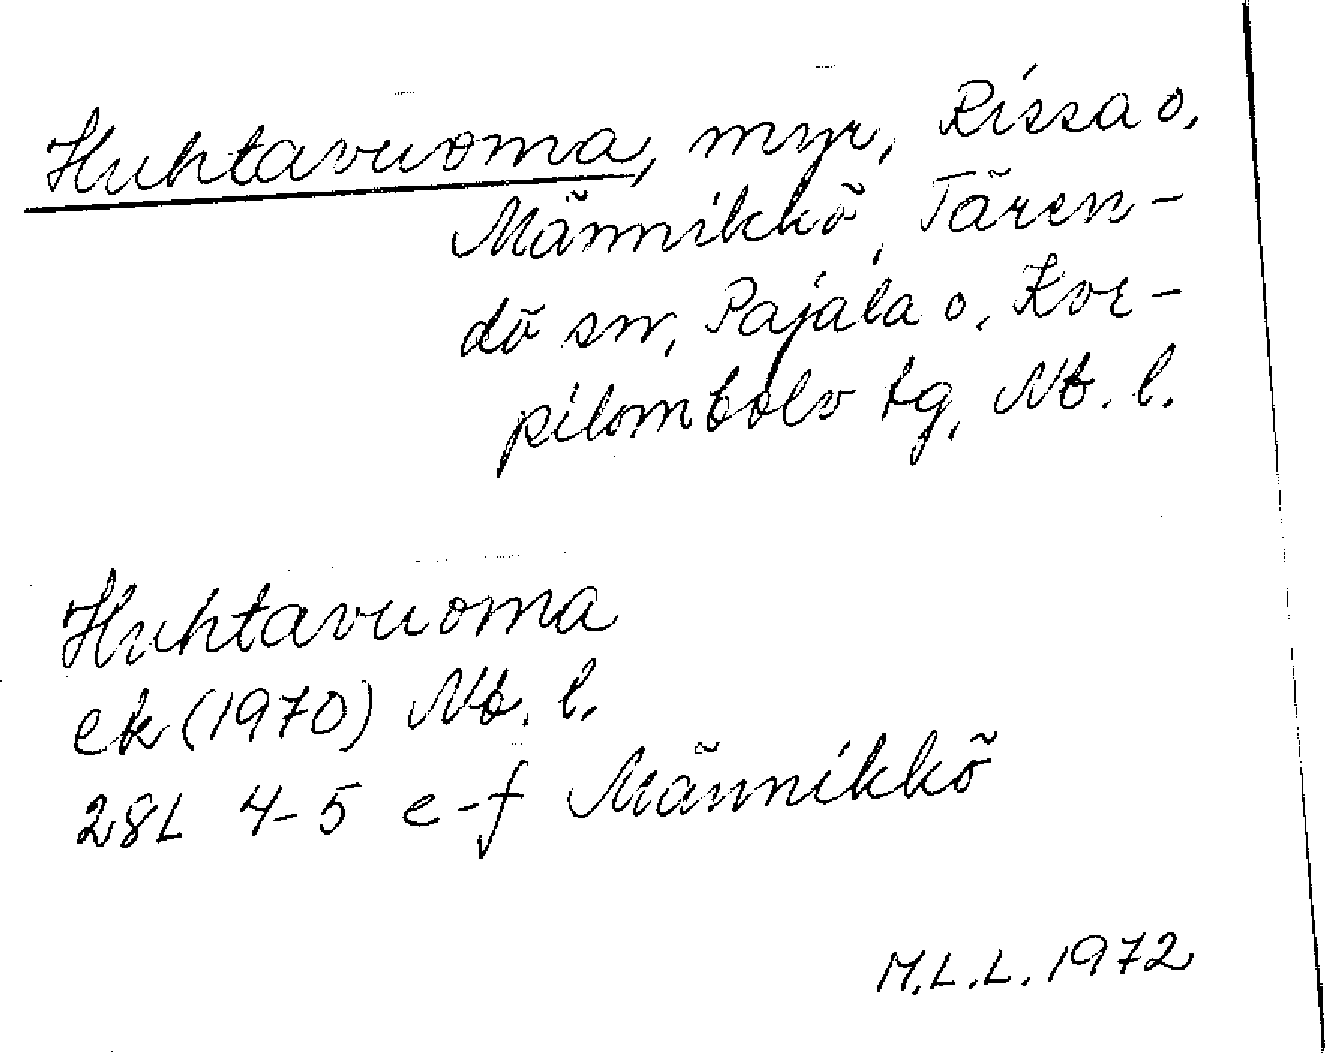 Huhtavuoma, myr, Rissa o,
Männikkö, Tären-
dö sn, Pajala o. Kor-
pilombolo tg, Nb. l.
Huhtavuoma
ek (1970) Nb. l.
28L 4-5 e-f Männikkö
M.L.L. 1972